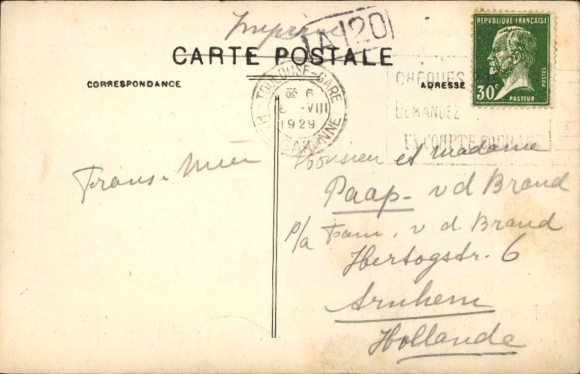 Imprimé
A120
CARTE POSTALE
CORRESPONDANCE
ADRESSE
REPUBLIQUE FRANÇAISE
30c
POSTES
PASTEUR
TOULOUSE-GARE
6
VIII
1929
CHEQUES
DEMANDEZ
UN COMPTE COURANT
Monsieur et madame
Paap- v d Brand
p/a Fam. v. d. Brand
Hertogstr. 6
Arnhem
Hollande
Frans-